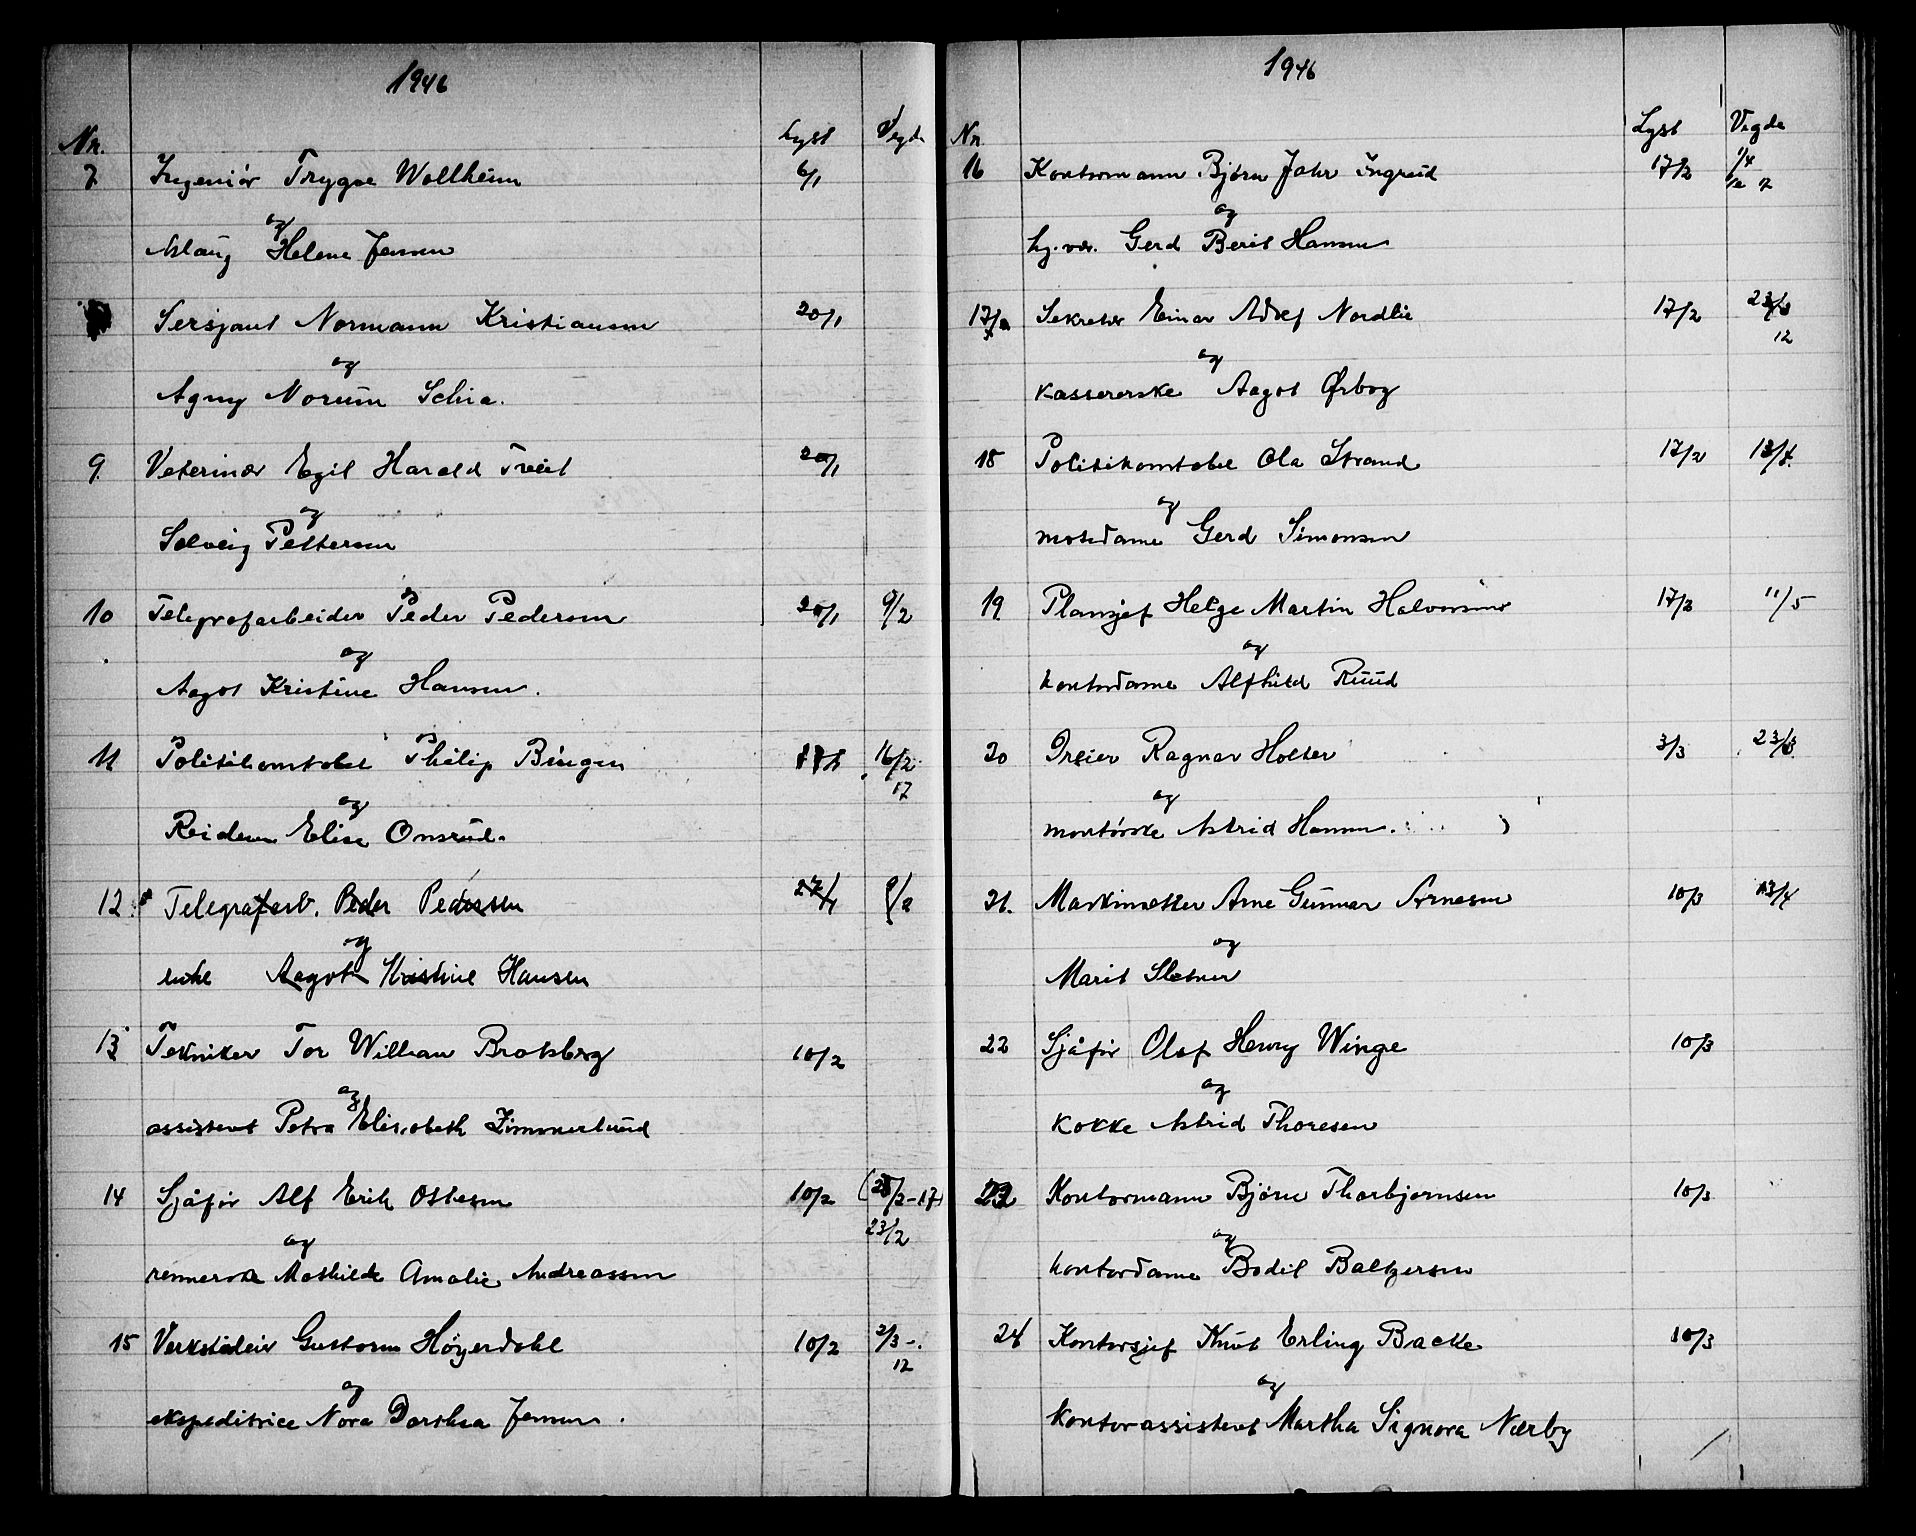 1946
Nr. Lyst Vegde
7 Ingeniør Trygve Wollheim 6/1
og
Aslaug Helene Jensen
Sersjant Normann Kristiansen 20/1
og
Agny Norum Schia.
9. Veterinær Egil Harald Tveit 20/1
og
Solveig Pettersen
10 Telegrafarbeider Peder Pedersen 20/1 9/2
og
Aagot Kristine Hansen.
11 Politikonstabel Philip Bingen 16/2
17
og
Reidun Elise Onsrud.
12. Telegrafarb. Peder Pedersen 27/1 9/2
og
enke Aagot Kristine Hansen
13 Tekniker Tor William Brotsberg 10/2
og
assistent Petra Elisabeth Zimmerlund
14 Sjåfør Alf Erik Ottesen 10/2 (28/2-17)
23/2
og
rennerske Mathilde Amalie Andreassen
15 Verkstedeier Guttorm Høyerdahl 10/2 2/3 -
12
og
ekspeditrice Nora Dorthea Jensen.
1946
Nr. Lyst Vegde
16 Kontormann Bjørn Jahr Ingrud 17/2
og
hj.vær. Gerd Berit Hansen
17 Sekretær Einar Adolf Nordlie 17/2 23/3
12
og
kassererske Aagot Ørbog
18 Politikonstabel Ola Strand 17/2 13/4.
og
motedame Gerd Simonsen
19. Plansjef Helge Martin Halvorsen 17/2 11/5
og
kontordame Alfhild Ruud
20 Dreier Ragnar Holter 3/3 23/3.
og
montørske Astrid Hansen.
21. Maskinsetter Arne Gunnar Arnesen 10/3 13/4
og
Marit Sletner
22 Sjåfør Olaf Henry Winge 10/3
og
kokke Astrid Thoresen
23 Kontormann Bjørn Thorbjørnsen 10/3
og
kontordame Bodil Baltzersen
24 Kontorsjef Knut Erling Backe 10/3
og
kontorassistent Martha Signora Nærby